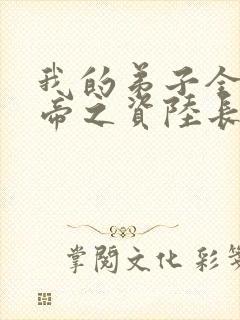 我的弟子全
帝之資陸長
掌閱文化 彩笺